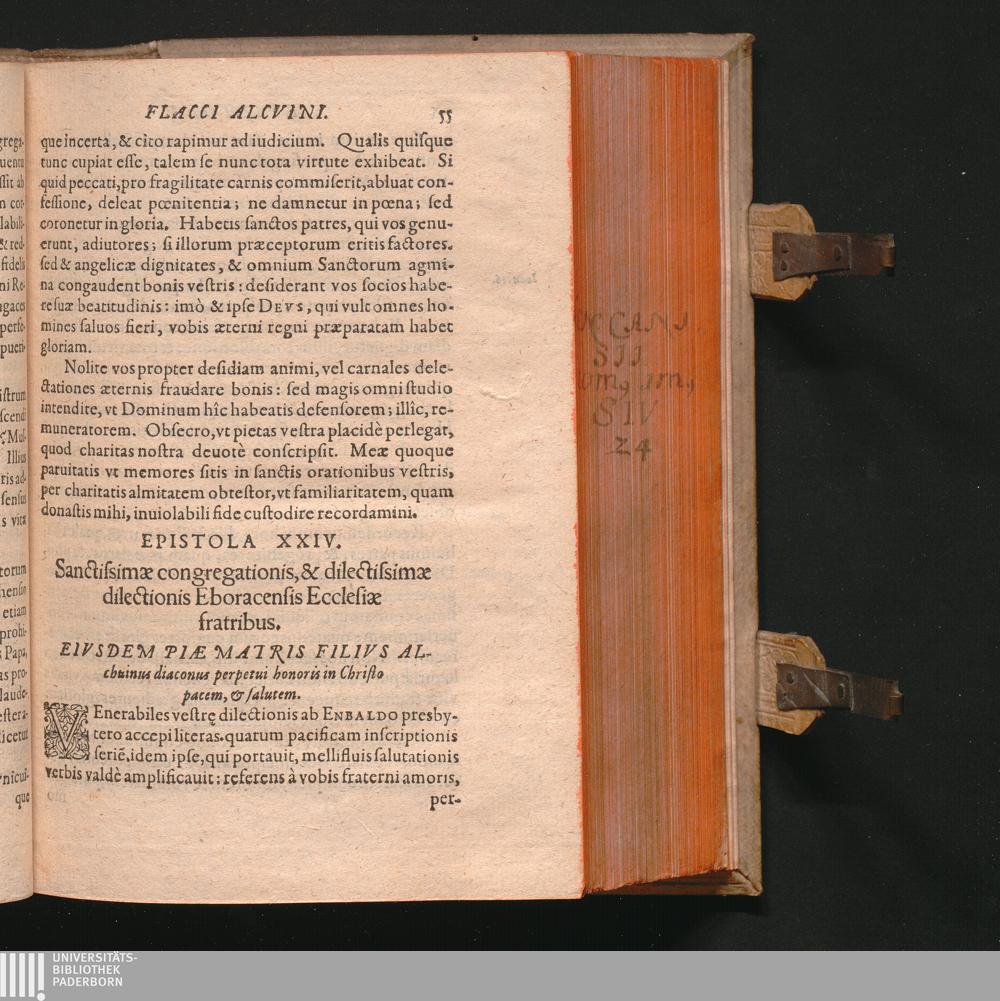 FLACCI ALCVINI. 55
que incerta, & cito rapimur ad iudicium. Qualis quiſque
tunc cupiat eſſe, talem ſe nunc tota virtute exhibeat. Si
quid peccati, pro fragilitate carnis commiſerit, abluat con-
feſſione, deleat pœnitentia; ne damnetur in pœna; ſed
coronetur in gloria. Habetis ſanctos patres, qui vos genu-
erunt, adiutores; ſi illorum præceptorum eritis factores.
ſed & angelicæ dignitates, & omnium Sanctorum agmi-
na congaudent bonis veſtris: deſiderant vos ſocios habe-
re ſuæ beatitudinis: imò & ipſe DEVS, qui vult omnes ho-
mines ſaluos fieri, vobis æterni regni præparatam habet
gloriam.
Nolite vos propter deſidiam animi, vel carnales dele-
ctationes æternis fraudare bonis: ſed magis omni ſtudio
intendite, vt Dominum hîc habeatis defenſorem; illîc, re-
muneratorem. Obſecro, vt pietas veſtra placidè perlegat,
quod charitas noſtra deuotè conſcripſit. Meæ quoque
paruitatis vt memores ſitis in ſanctis orationibus veſtris,
per charitatis almitatem obteſtor, vt familiaritatem, quam
donaſtis mihi, inuiolabili fide cuſtodire recordamini.
EPISTOLA XXIV.
Sanctiſsimæ congregationis, & dilectiſsimæ
dilectionis Eboracenſis Eccleſiæ
fratribus.
EIVSDEM PIÆ MATRIS FILIVS AL-
chuinus diaconus perpetui honoris in Chriſto
pacem, & ſalutem.
VEnerabiles veſtrę dilectionis ab ENBALDO presby-
tero accepi literas. quarum pacificam inſcriptionis
ſeriẽ, idem ipſe, qui portauit, mellifluis ſalutationis
verbis valdè amplificauit: referens à vobis fraterni amoris,
per-
SIV
24
UNIVERSITÄTS-
BIBLIOTHEK
PADERBORN